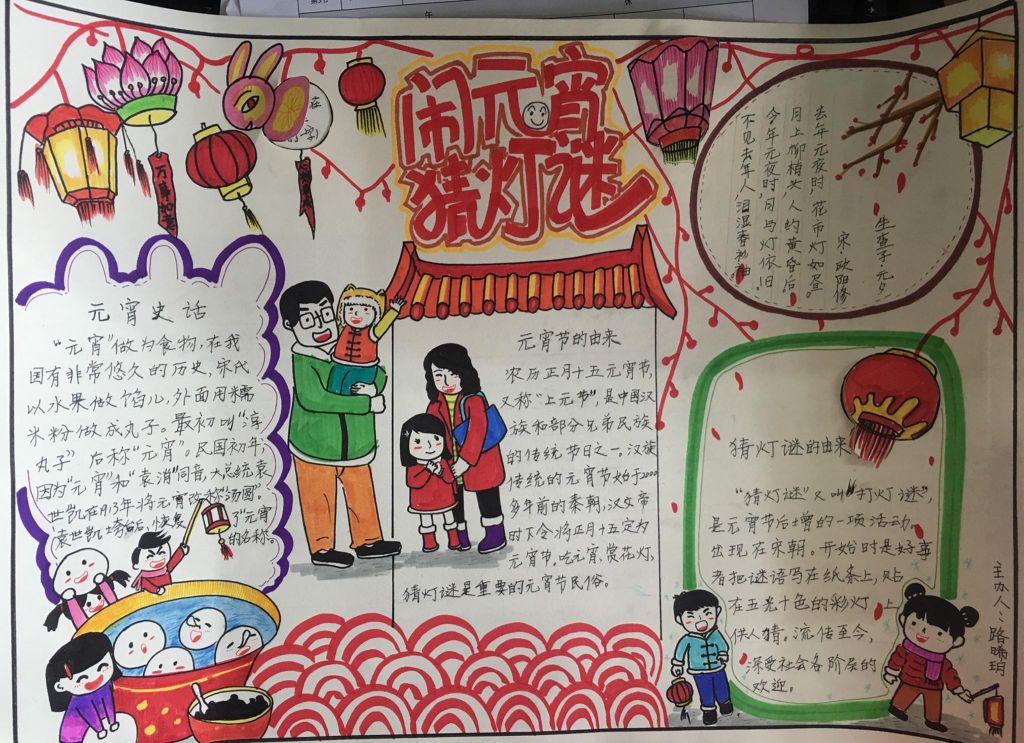 闹元宵
猜灯谜
万事如意
元宵史话
“元宵”做为食物,在我
国有非常悠久的历史,宋代
以水果做馅儿,外面用糯
米粉做成丸子。最初叫“浮
丸子”后称“元宵”。民国初年,
因为“元宵”和“袁消”同音,大总统袁
世凯在1913年将元宵改称“汤圆”。
袁世凯垮台后,
了“元宵
的名称
元宵节的由来
农历正月十五元宵节,
又称“上元节”,是中国汉
族和部分兄弟民族
的传统节日之一,汉族
传统的元宵节始于2000
多年前的秦朝,汉文帝
时下令将正月十五定为
元宵节。吃元宵、赏花灯,
猜灯谜是重要的元宵节民俗。
生查子·元夕
宋 欧阳修
去年元夜时 花市灯如昼。
月上柳梢头 人约黄昏后
今年元夜时,月与灯依旧
不见去年人,泪湿春衫袖。
猜灯谜的由来
“猜灯谜”又叫“打灯谜”,
是元宵节后增的一项活动,
出现在宋朝。开始时是好事
者把谜语写在纸条上,贴
在五光十色的彩灯上
供人猜。流传至今,
深受社会各阶层的
欢迎。
主办人:路晞玥